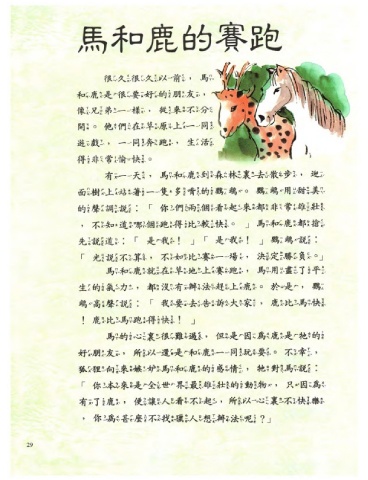 馬和鹿的賽跑
很久很久以前，馬
和鹿是很要好的朋友，
像兄弟一樣，從來不分
開。他們在草原上一同
遊戲，一同奔跑，生活
得非常愉快。
有一天，馬和鹿到森林裏去散步，迎
面樹上站著一隻多嘴的鸚鵡。鸚鵡用甜美
的聲調說：「你們兩個看起來都非常雄壯
，不知道哪個跑得比較快。」馬和鹿都搶
先說道：「是我！」「是我！」鸚鵡說：
「光說不算，不如比賽一場，決定勝負。」
馬和鹿就在草地上賽跑，馬用盡了平
生的氣力，都沒有辦法趕上鹿。於是，鸚
鵡高聲說：「我要去告訴大家，鹿比馬快
！鹿比馬跑得快！」
馬的心裏很難過，但是因為鹿是牠的
好朋友，所以還是和鹿一同玩耍。不幸，
狐狸向來嫉妒馬和鹿的感情，牠對馬說：
「你本來是全世界最雄壯的動物，只因為
有了鹿，便讓人看不起，所以心裏不快樂
，你為甚麼不找獵人想辦法呢？」
29